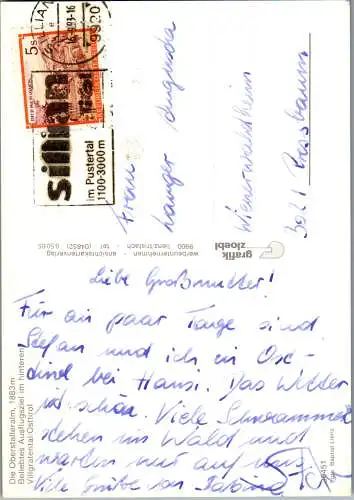 SILLIAN
9920
5 S
sillian
tirol
im Pustertal
1100-3000 m
Frau
Langer Auguste
Wienerwaldheim
3021 Pressbaum
grafik zloebl
werbeunternehmen - ansichtskartenverlag
9900 lienz/tristach - tel (04852) 65065
Liebe Großmutter!
Für ein paar Tage sind
Stefan und ich in Ost-
tirol bei Hansi. Das Wetter
ist schön. Viele Schwammerl
stehen im Wald und
warten nur auf uns.
Viele Grüße von
Die Oberstalleralm, 1883 m
Beliebtes Ausflugsziel im hinteren
Villgratental/Osttirol
Foto: Baptist Lienz